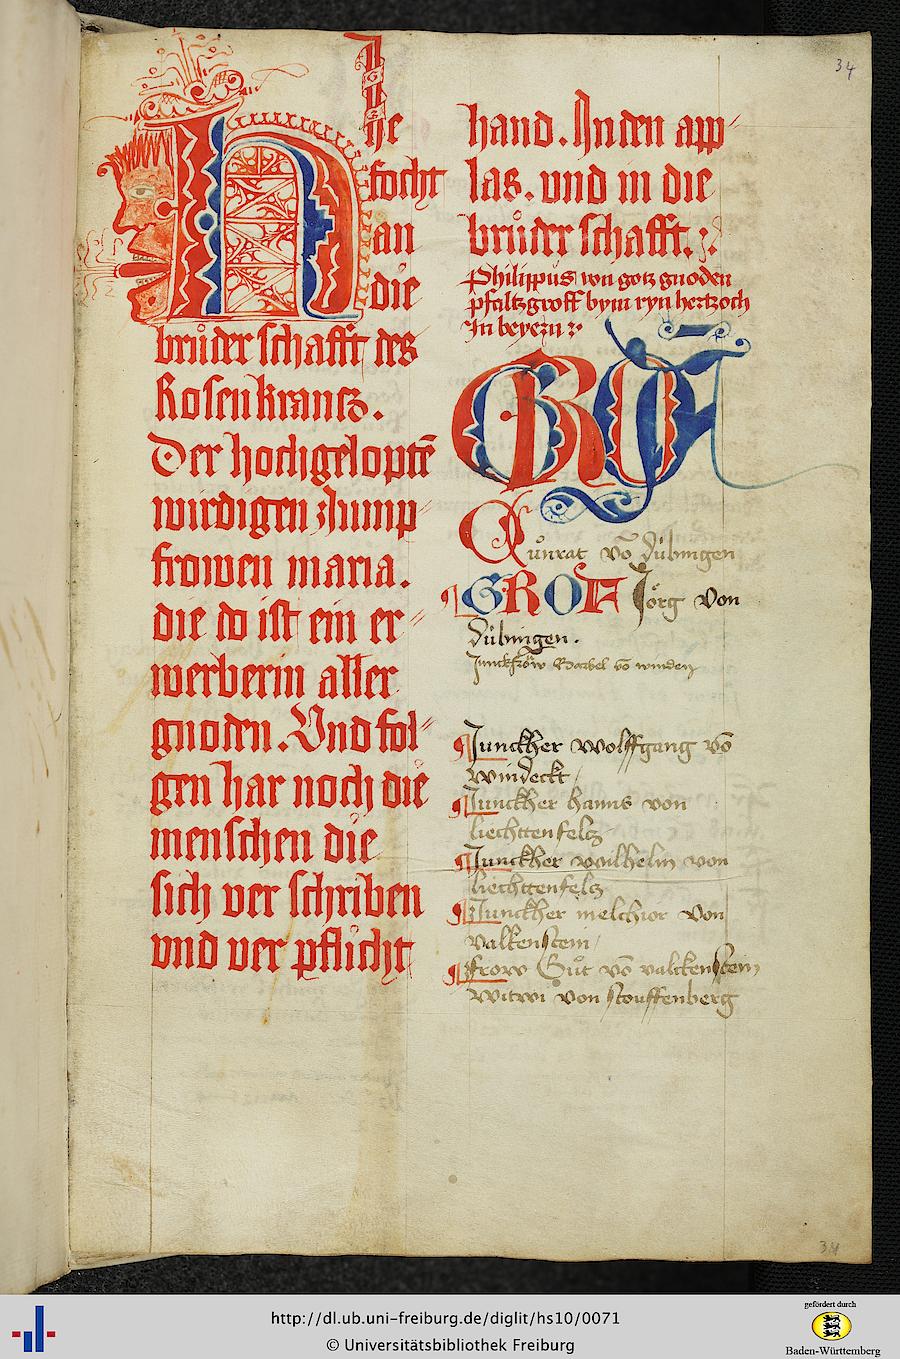 34
HIe
focht
an
die
brůder schafft des
Rosenkrancz.
Der hochgeloptē
wirdigen Jump
frowen maria.
die do ist ein er
werberin aller
gnoden. Vnd fol
gen har noch die
menschen die
sich ver schriben
vnd ver pflicht
hand. Jn den app
las. vnd in die
brůder schafft.
Philippus von gotz gnoden
pfaltzgroff bym ryn hertzoch
Jn beyern
GROF
Cůnrat vō dúbingen
GROF Jörg von
dúbingen.
Junckfröw Barbel vō winden
Junckher wolffgang vō
windeck
Junckher hanns von
liechttenfelcz
Junckher wilhelm von
liechttenfelcz
Junckher melchior von
valkenstein
frow Gůt vō valckenstein
witwi von stouffenberg
34
http://dl.ub.uni-freiburg.de/diglit/hs10/0071
© Universitätsbibliothek Freiburg
gefördert durch
Baden-Württemberg